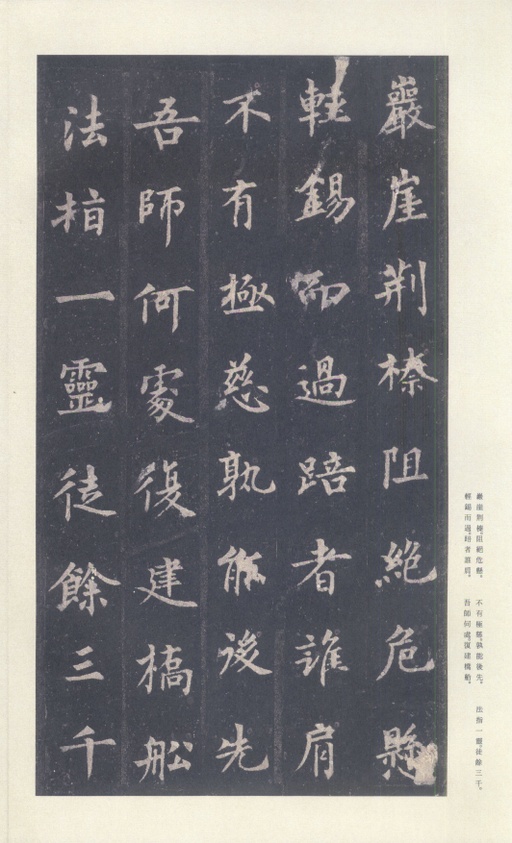 巖崖荆榛阻絶危懸
輕錫而過踣者誰肩
不有極慈孰能後先
吾師何處復建橋舩
法指一靈徒餘三千
巖崖荆榛，阻絶危懸。不有極慈，孰能後先。法指一靈，徒餘三千。
輕錫而過，踣者誰肩。吾師何處，復建橋舩。